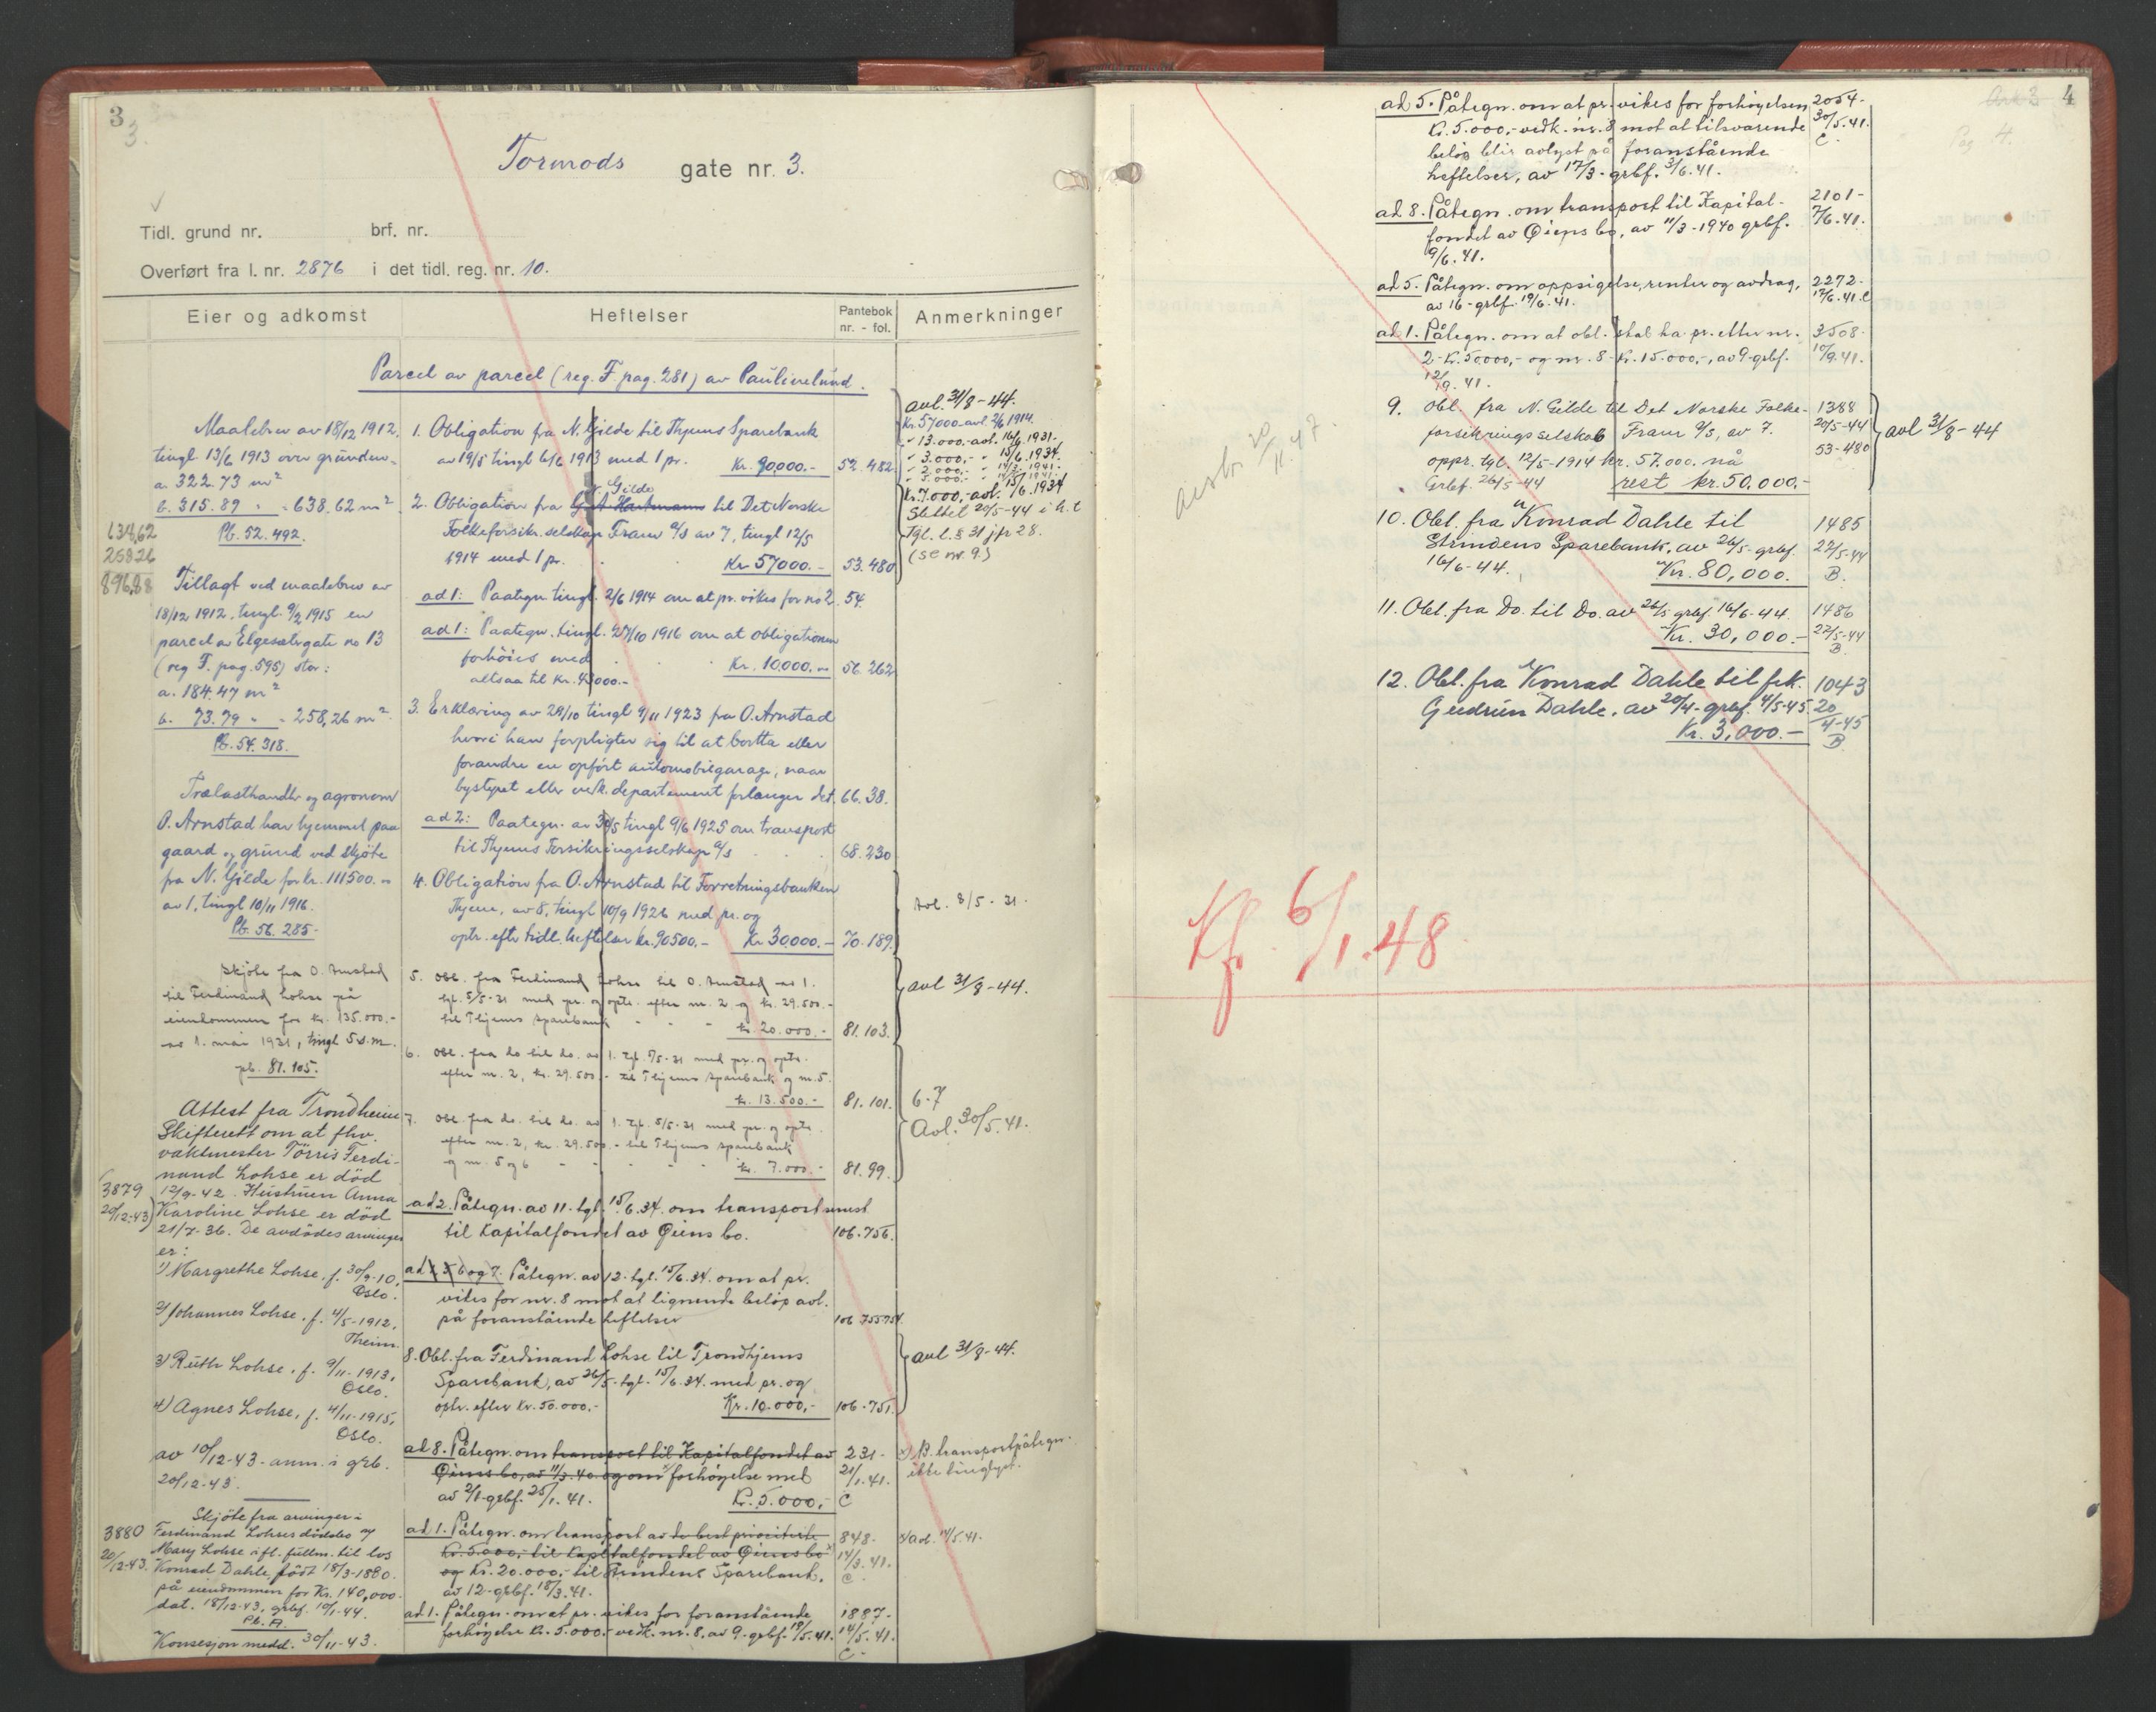 3
3.
Tormods gate nr. 3.
Tidl. grund nr. brf. nr.
Overført fra l. nr. 2876 i det tidl. reg. nr. 10.
Eier og adkomst
Heftelser
Pantebok
nr. - fol.
Anmerkninger
Parcel av parcel (reg. F. pag. 281) av Paulinelund.
Maalebrev av 18/12 1912,
tingl. 13/6 1913 over grunden
a. 322.73 m²
b. 315.89 " = 638.62 m²
Pb. 52. 492.
638,62
258.26
896.88
Tillagt ved maalebrev av
18/12 1912, tingl. 9/2 1915 en
parcel av Elgesætergate no 13
(reg F. pag. 595) stor:
a. 184.47 m²
b. 73.79 " = 258,26 m²
Pb. 54. 318.
Trælasthandler og agronom
O. Arnstad har hjemmel paa
gaard og grund ved skjøte
fra N. Gilde for kr. 111500.-
av 1, tingl 10/11 1916.
Pb. 56. 285-
Skjøte fra O. Arnstad
til Ferdinand Lohse på
eiendommen for kr. 135.000.-
av 1. mai 1931, tingl 5 s.m.
pb. 81. 105.
Attest fra Trondheim
Skifterett om at fhv.
vaktmester Tørris Ferdi-
nand Lohse er død
12/9-42. Hustruen Anna
Karoline Lohse er død
21/7-36. De avdødes arvinger
er:
1) Margrethe Lohse, f. 30/9-10,
Oslo.
2) Johannes Lohse, f. 4/5-1912,
Theim.
3) Ruth Lohse, f. 9/11-1913,
Oslo.
4) Agnes Lohse, f. 4/11-1915,
Oslo.
av 10/12-43. anm. i grb.
20/12-43.
3879
20/12-43)
Skjøte fra arvinger i
Ferdinand Lohses dødsbo og
Mary Lohse ifl. fullm. til los
Konrad Dahle, født 18/3-1880.
på eiendommen for Kr. 140,000.
dat. 18/12-43, grbf. 10/1-44.
Pb. A.
Konsesjon medd. 30/11-43.
3880
20/12-43.
1. Obligation fra N. Gilde til Thjems Sparebank
av 19/5 tingl 6/6 1913 med 1 pr. Kr. 90,000.- 52. 482
2. Obligation fra G. A. Hartmann N. Gilde til Det Norske
Folkeforsikr. selskap Fram a/s av 7, tingl 12/5
1914 med 1 pr. Kr 57000.- 53. 480
ad 1: Paategn tingl. 2/6 1914 om at pr. vikes for no 2. 54.
ad 1: Paategn. tingl. 27/10 1916 om at obligationen
forhøies med Kr. 10,000.- 56. 262
altsaa til kr. 43000.-
3. Erklæring av 29/10 tingl 9/11 1923 fra O. Arnstad
hvori han forpligter sig til at bortta eller
forandre en opført automobilgarage, naar
bystyret eller vedk. departement forlanger det. 66. 38.
ad 2: Paategn. av 30/5 tingl 9/6 1925 om transport
til Thjems Forsikringsselskap a/s 68. 230
4. Obligation fra O. Arnstad til Forretningsbanken
Thjem, av 8, tingl 10/9 1926 med pr. og
optr. efter tidl. heftelser kr. 90500.- Kr 30.000.- 70-189.
5. Obl. fra Ferdinand Lohse til O. Arnstad av 1.
tgl. 5/5-31 med pr. og optr. efter nr. 2 og kr. 29.500.-
til Thjems Sparebank kr. 20.000.- 81. 103.
6. Obl. fra do til do. av 1. tgl. 5/5-31 med pr. og optr.
efter nr. 2, kr. 29.500.- til Thjems Sparebank og nr. 5.
kr. 13.500.- 81. 101.
7. Obl. fra do. til do. av 1. tgl. 5/5-31 med pr. og optr.
efter nr. 2, kr. 29.500.- til Thjems Sparebank
og nr. 5 og 6 kr. 7.000.- 81. 99.
ad 2. Påtegn. av 11. tgl. 15/6.34. om transport
til Kapitalfondet av Øiens bo. 106-756.
ad 2 5 6 og 7. Påtegn. av 12. tgl. 15/6.34. om at pr.
vikes for nr. 8 mot at lignende beløp avl.
på foranstående heftelser 106.755 754.
8. Obl. fra Ferdinand Lohse til Trondhjems
Sparebank, av 26/5. tgl. 15/6.34. med pr. og
optr. efter kr. 50.000.- Kr. 10.000,- 106-751.
ad 8. Påtegn. om transport til Kapitalfondet av
Øiens bo, av 11/3.40. og om x) forhøyelse med
av 2/1-grbf. 25/1.41. Kr. 5.000,-
231-
21/1.41.
C
ad 1. Påtegn. om transport av de best prioriterte
Kr. 5.000,- til Kapitalfondet av Øiens bo x
og Kr. 20.000,- til Strindens Sparebank.
av 12-grbf. 18/3.41.
848-
14/3.41.
C
ad 1. Påtegn. om at pr. vikes for foranstående
forhøyelse Kr. 5.000.- vedk. nr. 8, av 9-grbf. 19/5.41.
1887-
14/5.41.
C-
avl. 31/8-44.
Kr. 57000 avl. 2/6 1914.
" 13.000.- avl. 16/9.1931.
" 3.000,- " 15/6.1934.
" 2.000,- "
" 5.000.- "
Kr. 7.000,- avl. 15/6.1934
Slettet 20/5-44 i h. t
Tgl. l. § 31 jfr 28.
(se nr. 9)
Avl. 8/5-31.
avl 31/8-44.
6-7
Avl. 30/5.41.
avl 31/8-44.
x) B. transportpåtegn.
ikke tinglyst.
x) Avl. 14/5.41.
Ark 3 4
Pag 4.
ad 5. Påtegn. om at pr. vikes for forhøyelsen
Kr. 5.000,- vedk. nr. 8 mot at tilsvarende
beløp blir avlyst på foranstående
heftelser, av 17/3-grbf. 3/6.41.
2054-
30/5.41.
C.
ad 8. Påtegn. om transport til Kapital-
fondet av Øiens bo, av 11/3-1940 grbf.
9/6.41.
2101-
7/6.41.
ad 5. Påtegn. om oppsigelse, renter og avdrag,
av 16-grbf. 19/6.41.
2272-
17/6.41. C
ad 1. Påtegn. om at obl. skal ha pr. etter nr.
2-Kr. 50000,- og nr. 8-Kr. 15.000,-, av 9-grbf.
12/9.41.
3508-
10/9.41.
9. Obl. fra N. Gilde til Det Norske Folke-
forsikringsselskab Fram a/s, av 7.
oppr. tgl. 12/5-1914 kr. 57.000. nå
Grbf. 26/5-44 rest kr. 50.000.-
1388
20/5-44
53-480
avl 31/8-44
10. Obl. fra Konrad Dahle til
Strindens Sparebank, av 26/5-grbf.
16/6-44. Kr. 80,000.-
1485
27/5-44
B.
11. Obl. fra Do. til Do. av 26/5 grbf 16/6-44.
Kr. 30,000.-
1486
27/5-44
B.
12. Obl. fra Konrad Dahle til frk.
Gudrun Dahle, av 20/4-grbf. 4/5-45.
Kr. 3,000.-
1043
20/4-45
B
20/11.47.
Kf. 6/1.48